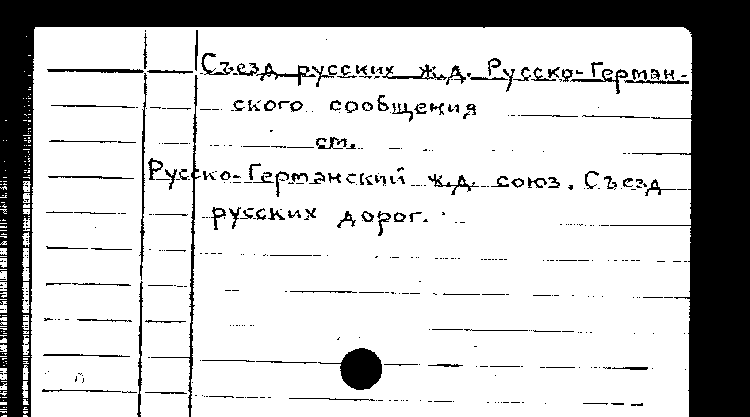 Съезд русских ж.д. Русско-Герман-
ского сообщения
см.
Русско-Германский ж.д. союз. Съезд
русских дорог.